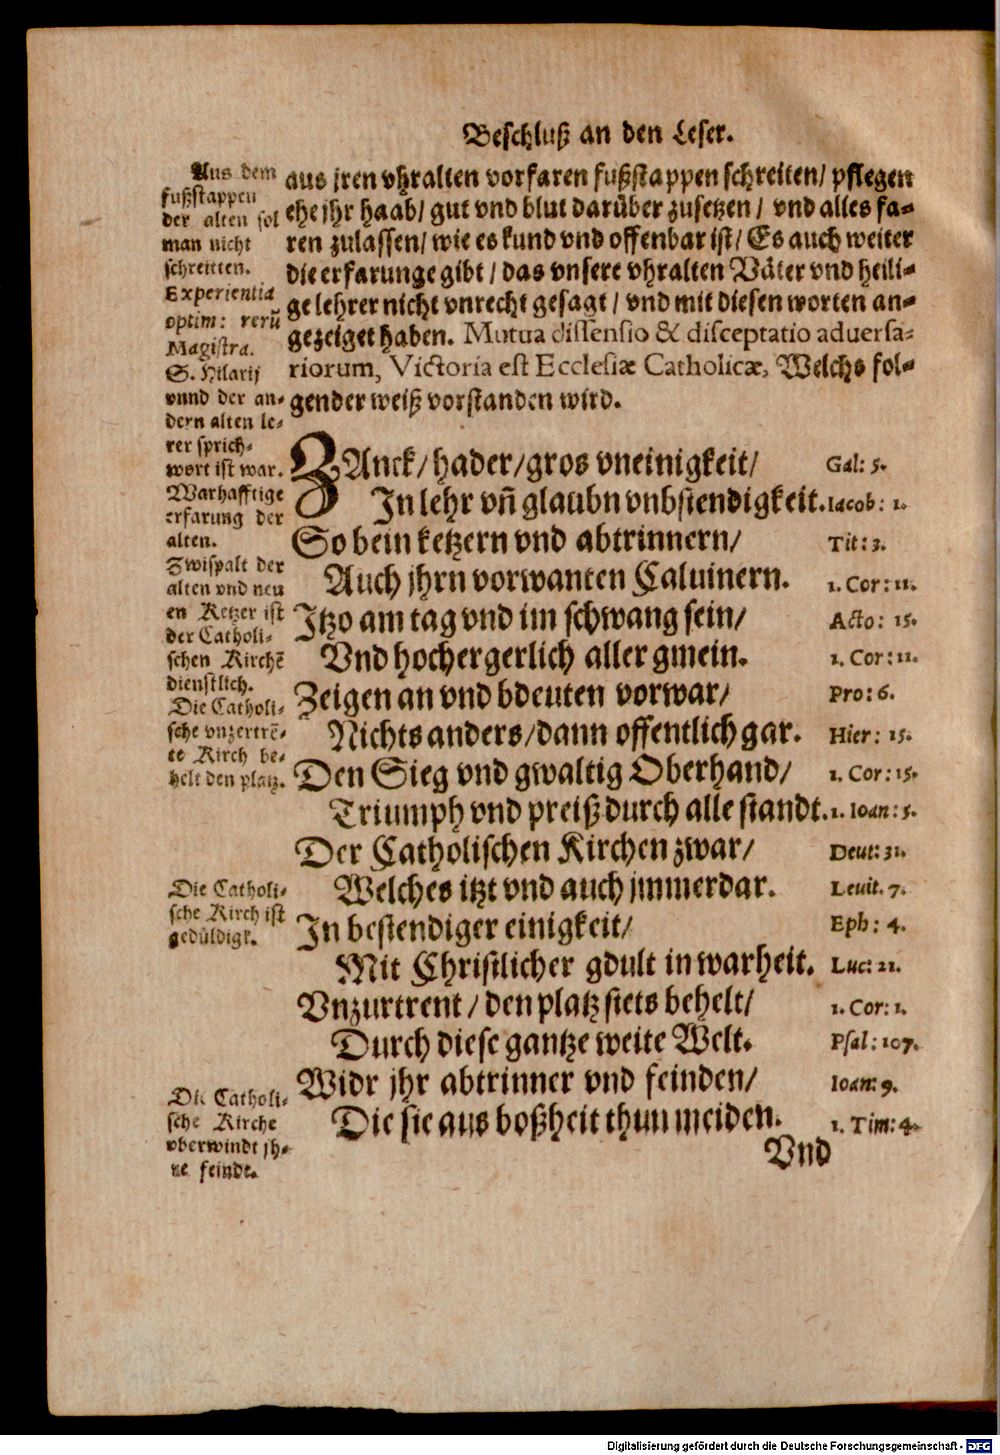 Beschluß an den Leser.
Aus dem
fußstappen
der alten sol
man nicht
schreitten.
Experientia
optim: rerū
Magistra.
S. Hilarij
vnnd der an-
dern alten le-
rer sprich-
wort ist war.
Warhafftige
erfarung der
alten.
Zwispalt der
alten vnd neu
en Ketzer ist
der Catholi-
schen Kirchē
dienstlich.
Die Catholi-
sche vnzertrē-
te Kirch be-
helt den platz.
Die Catholi-
sche Kirch ist
gedüldigk.
Die Catholi-
sche Kirche
vberwindt jh-
re feindt.
aus jren vhralten vorfaren fußstappen schreiten/ pflegen
ehe jhr haab/ gut vnd blut darüber zusetzen/ vnd alles fa-
ren zulassen/ wie es kund vnd offenbar ist/ Es auch weiter
die erfarunge gibt/ das vnsere vhralten Väter vnd heili-
ge lehrer nicht vnrecht gesagt/ vnd mit diesen worten an-
gezeiget haben. Mutua dissensio & disceptatio adversa-
riorum, Victoria est Ecclesiæ Catholicæ, Welchs fol-
gender weiß vorstanden wird.
ZAnck/ hader/ gros vneinigkeit/ Gal: 5.
In lehr vn̄ glaubn vnbstendigkeit. Iacob: 1.
So bein ketzern vnd abtrinnern/ Tit: 3.
Auch jhrn vorwanten Caluinern. 1. Cor: 11.
Itzo am tag vnd im schwang sein/ Acto: 15.
Vnd hochergerlich aller gmein. 1. Cor: 11.
Zeigen an vnd bdeuten vorwar/ Pro: 6.
Nichts anders/ dann offentlich gar. Hier: 15.
Den Sieg vnd gwaltig Oberhand/ 1. Cor: 15.
Triumph vnd preiß durch alle standt. 1. Ioan: 5.
Der Catholischen Kirchen zwar/ Deut: 31.
Welches itzt vnd auch jmmerdar. Leuit. 7.
In bestendiger einigkeit/ Eph: 4.
Mit Christlicher gdult in warheit. Luc: 21.
Vnzurtrent/ den platz stets behelt/ 1. Cor: 1.
Durch diese gantze weite Welt. Psal: 107.
Widr jhr abtrinner vnd feinden/ Ioan: 9.
Die sie aus boßheit thun meiden. 1. Tim: 4.
Vnd
Digitalisierung gefördert durch die Deutsche Forschungsgemeinschaft - DFG